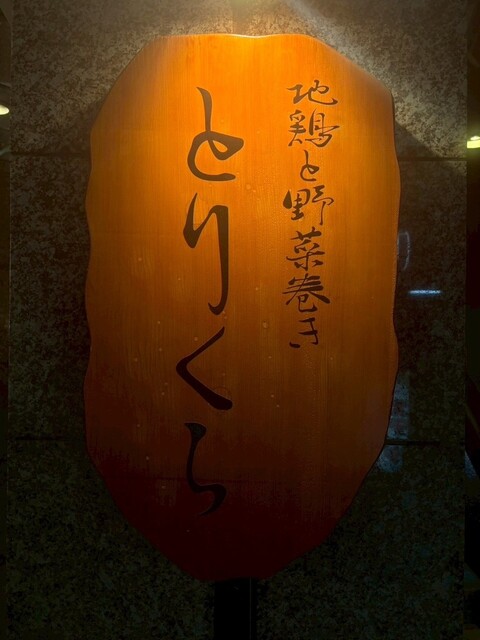 地鶏と野菜巻き
とりくら